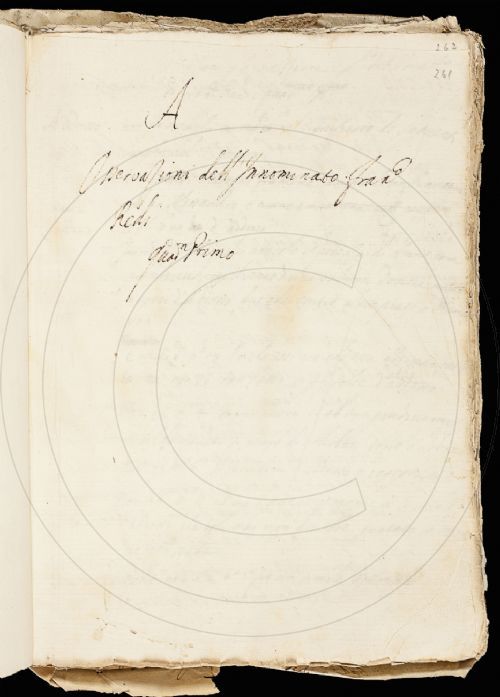 262
261
A
Osservazioni dell'Innominato Fran.co
Redi
Quad.no Primo